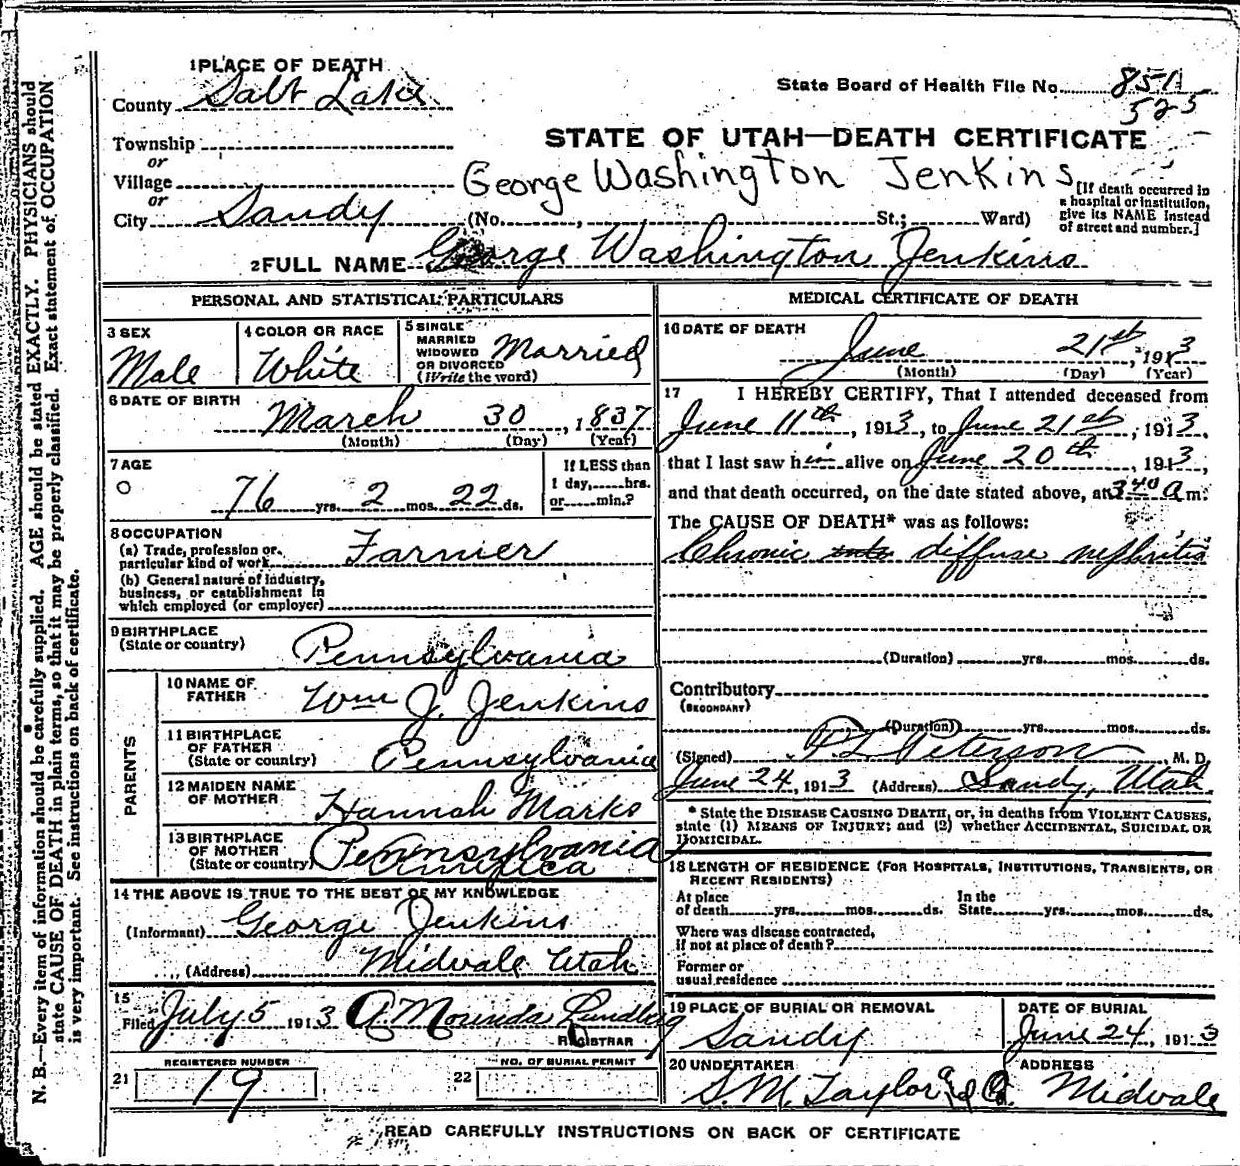 1 PLACE OF DEATH
County Salt Lake
State Board of Health File No. 851
525
Township
or
Village
or
City Sandy (No. , St.; Ward)
STATE OF UTAH—DEATH CERTIFICATE
George Washington Jenkins
[If death occurred in
a hospital or institution,
give its NAME instead
of street and number.]
2 FULL NAME George Washington Jenkins
PERSONAL AND STATISTICAL PARTICULARS
3 SEX
Male
4 COLOR OR RACE
White
5 SINGLE
MARRIED
WIDOWED
OR DIVORCED
(Write the word)
Married
6 DATE OF BIRTH
March 30, 1837
(Month) (Day) (Year)
7 AGE
76 yrs. 2 mos. 22 ds.
If LESS than
1 day, hrs.
or min.?
8 OCCUPATION
(a) Trade, profession or
particular kind of work Farmer
(b) General nature of industry,
business, or establishment in
which employed (or employer)
9 BIRTHPLACE
(State or country) Pennsylvania
PARENTS
10 NAME OF
FATHER Wm J. Jenkins
11 BIRTHPLACE
OF FATHER
(State or country) Pennsylvania
12 MAIDEN NAME
OF MOTHER Hannah Marks
13 BIRTHPLACE
OF MOTHER
(State or country) Pennsylvania
America
14 THE ABOVE IS TRUE TO THE BEST OF MY KNOWLEDGE
(Informant) George Jenkins
(Address) Midvale Utah
15
Filed July 5 1913
REGISTRAR
REGISTERED NUMBER
21 19
NO. OF BURIAL PERMIT
22
MEDICAL CERTIFICATE OF DEATH
16 DATE OF DEATH
June 21st, 1913
(Month) (Day) (Year)
17 I HEREBY CERTIFY, That I attended deceased from
June 11th, 1913, to June 21st, 1913,
that I last saw him alive on June 20th, 1913,
and that death occurred, on the date stated above, at 3 40 a m.
The CAUSE OF DEATH* was as follows:
Chronic diffuse nephritis
(Duration) yrs. mos. ds.
Contributory
(SECONDARY)
(Duration) yrs. mos. ds.
(Signed) Peterson, M. D.
June 24, 1913 (Address) Sandy, Utah.
* State the DISEASE CAUSING DEATH, or, in deaths from VIOLENT CAUSES,
state (1) MEANS OF INJURY; and (2) whether ACCIDENTAL, SUICIDAL OR
HOMICIDAL.
18 LENGTH OF RESIDENCE (FOR HOSPITALS, INSTITUTIONS, TRANSIENTS, OR
RECENT RESIDENTS)
At place
of death yrs. mos. ds.
In the
State yrs. mos. ds.
Where was disease contracted,
if not at place of death?
Former or
usual residence
19 PLACE OF BURIAL OR REMOVAL
Sandy
DATE OF BURIAL
June 24, 1913
20 UNDERTAKER
S. M. Taylor & Co.
ADDRESS
Midvale
READ CAREFULLY INSTRUCTIONS ON BACK OF CERTIFICATE
N. B.—Every item of information should be carefully supplied. AGE should be stated EXACTLY. PHYSICIANS should
state CAUSE OF DEATH in plain terms, so that it may be properly classified. Exact statement of OCCUPATION
is very important. See instructions on back of certificate.